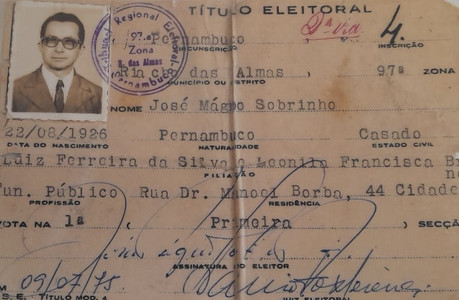 TÍTULO ELEITORAL
2ª via
4.
Tribunal Regional Eleitoral
97.a
Zona
R. das Almas
Pernambuco
Pernambuco
CIRCUNSCRIÇÃO
INSCRIÇÃO
Riacho das Almas , 97ª ZONA
MUNICÍPIO OU DISTRITO
NOME José Mágno Sobrinho
22/08/1926 Pernambuco Casado
DATA DO NASCIMENTO NATURALIDADE ESTADO CIVIL
Luiz Ferreira da Silva e Leonila Francisca
FILIAÇÃO
Fun. Público Rua Dr. Manoel Borba, 44 Cidade
PROFISSÃO RESIDÊNCIA
VOTA NA 1ª ( Primeira ) SECÇÃO
ASSINATURA DO ELEITOR
EM 09/07/75
S. E. TÍTULO MOD. JUIZ ELEITORAL